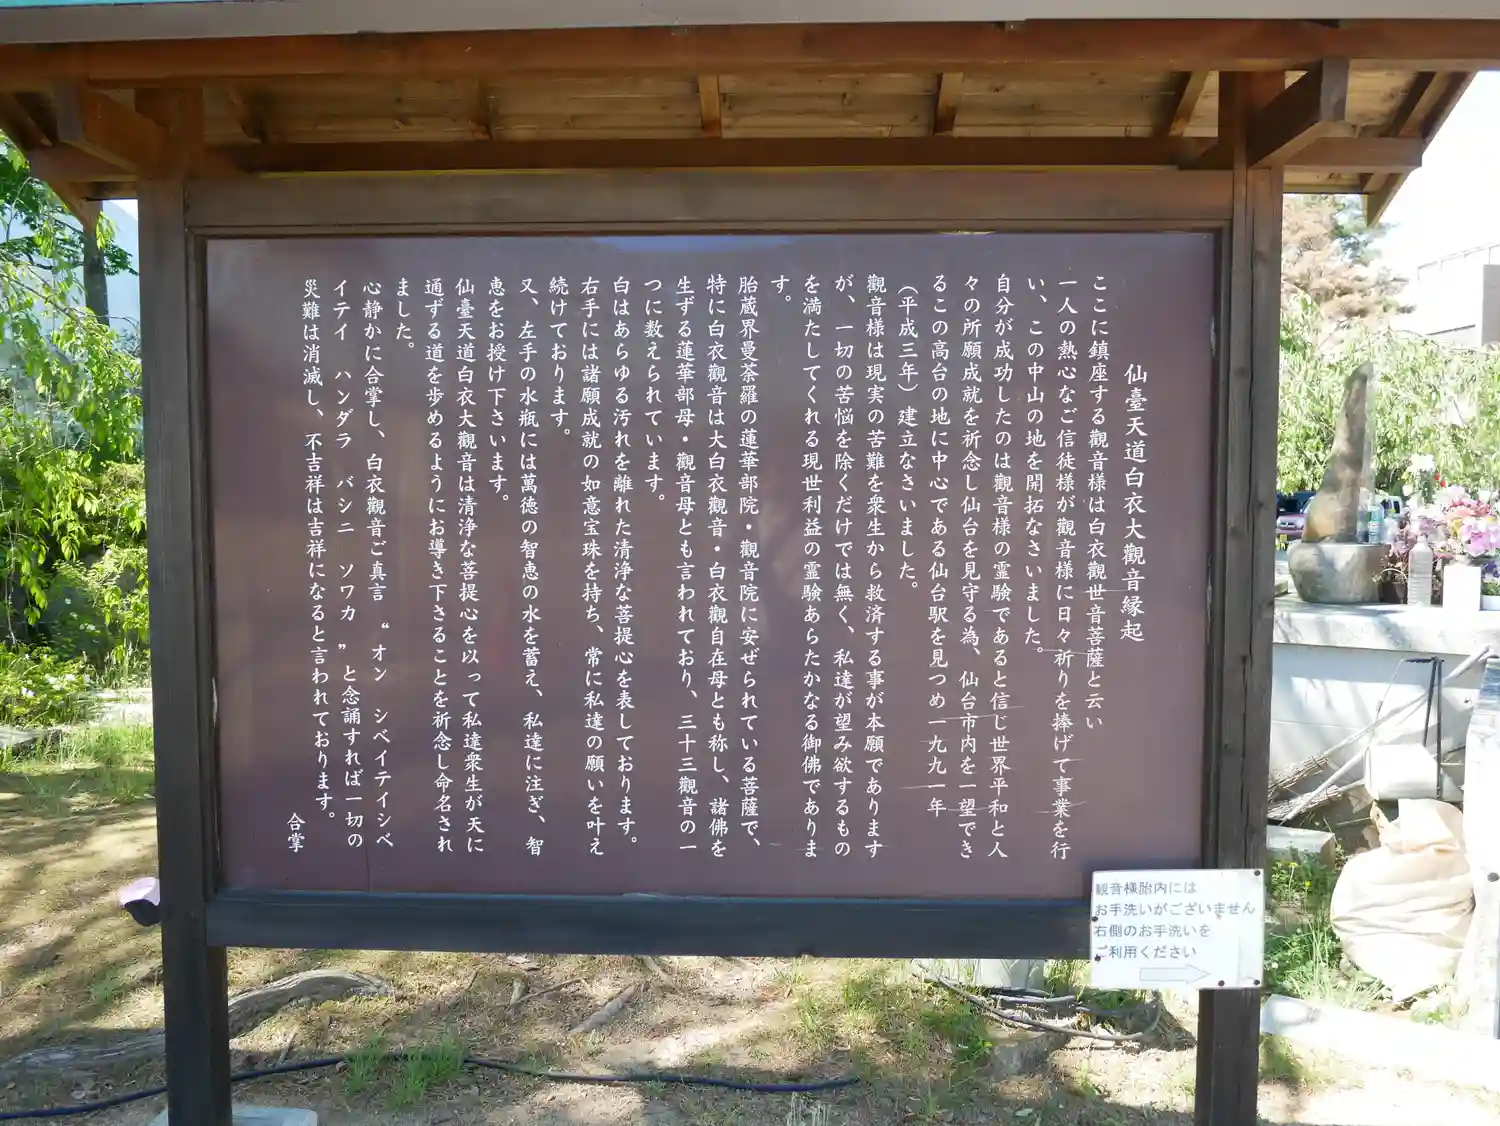 仙臺天道白衣大觀音縁起
ここに鎮座する觀音様は白衣觀世音菩薩と云い
一人の熱心なご信徒様が觀音様に日々祈りを捧げて事業を行
い、この中山の地を開拓なさいました。
自分が成功したのは觀音様の霊験であると信じ世界平和と人
々の所願成就を祈念し仙台を見守る為、仙台市内を一望でき
るこの高台の地に中心である仙台駅を見つめ一九九一年
(平成三年)建立なさいました。
觀音様は現実の苦難を衆生から救済する事が本願であります
が、一切の苦悩を除くだけでは無く、私達が望み欲するもの
を満たしてくれる現世利益の霊験あらたかなる御佛でありま
す。
胎蔵界曼荼羅の蓮華部院・觀音院に安ぜられている菩薩で、
特に白衣觀音は大白衣觀音・白衣觀自在母とも称し、諸佛を
生ずる蓮華部母・觀音母とも言われており、三十三觀音の一
つに数えられています。
白はあらゆる汚れを離れた清浄な菩提心を表しております。
右手には諸願成就の如意宝珠を持ち、常に私達の願いを叶え
続けております。
又、左手の水瓶には萬徳の智恵の水を蓄え、私達に注ぎ、智
恵をお授け下さいます。
仙臺天道白衣大觀音は清浄な菩提心を以って私達衆生が天に
通ずる道を歩めるようにお導き下さることを祈念し命名され
ました。
心静かに合掌し、白衣觀音ご真言 “オン シベイテイシベ
イテイ ハンダラ バシニ ソワカ ”と念誦すれば一切の
災難は消滅し、不吉祥は吉祥になると言われております。
合掌
観音様胎内には
お手洗いがございません
右側のお手洗いを
ご利用ください